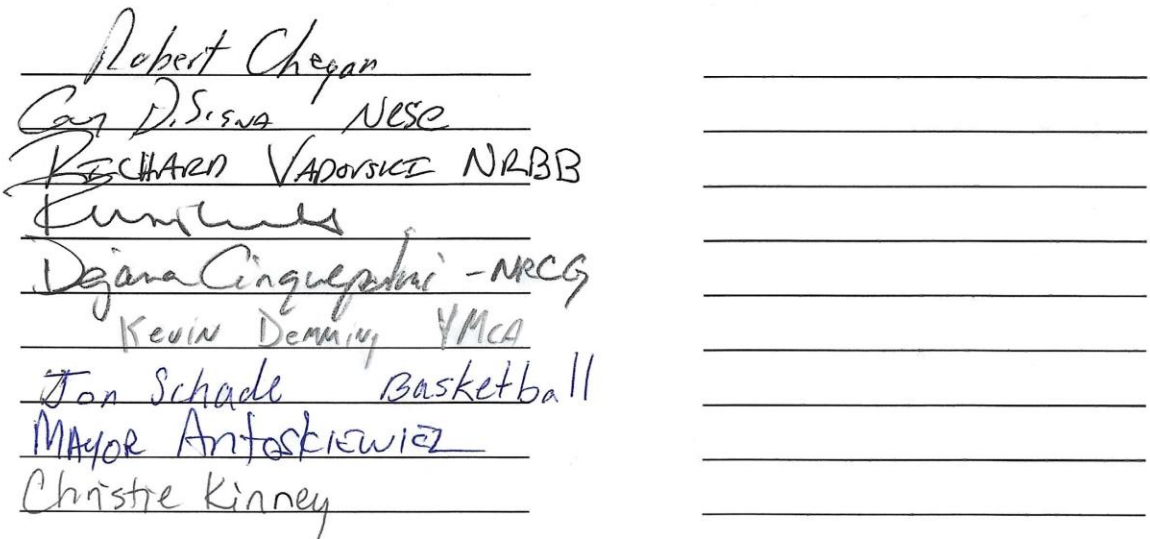 Robert Chegan
D.Signa NRSC
RICHARD VADOVSKI NRBB
Dejana Cinquepalmi - NRCG
Kevin Demming YMCA
Jon Schade Basketball
MAYOR AntoskIEWIEZ
Christie Kinney